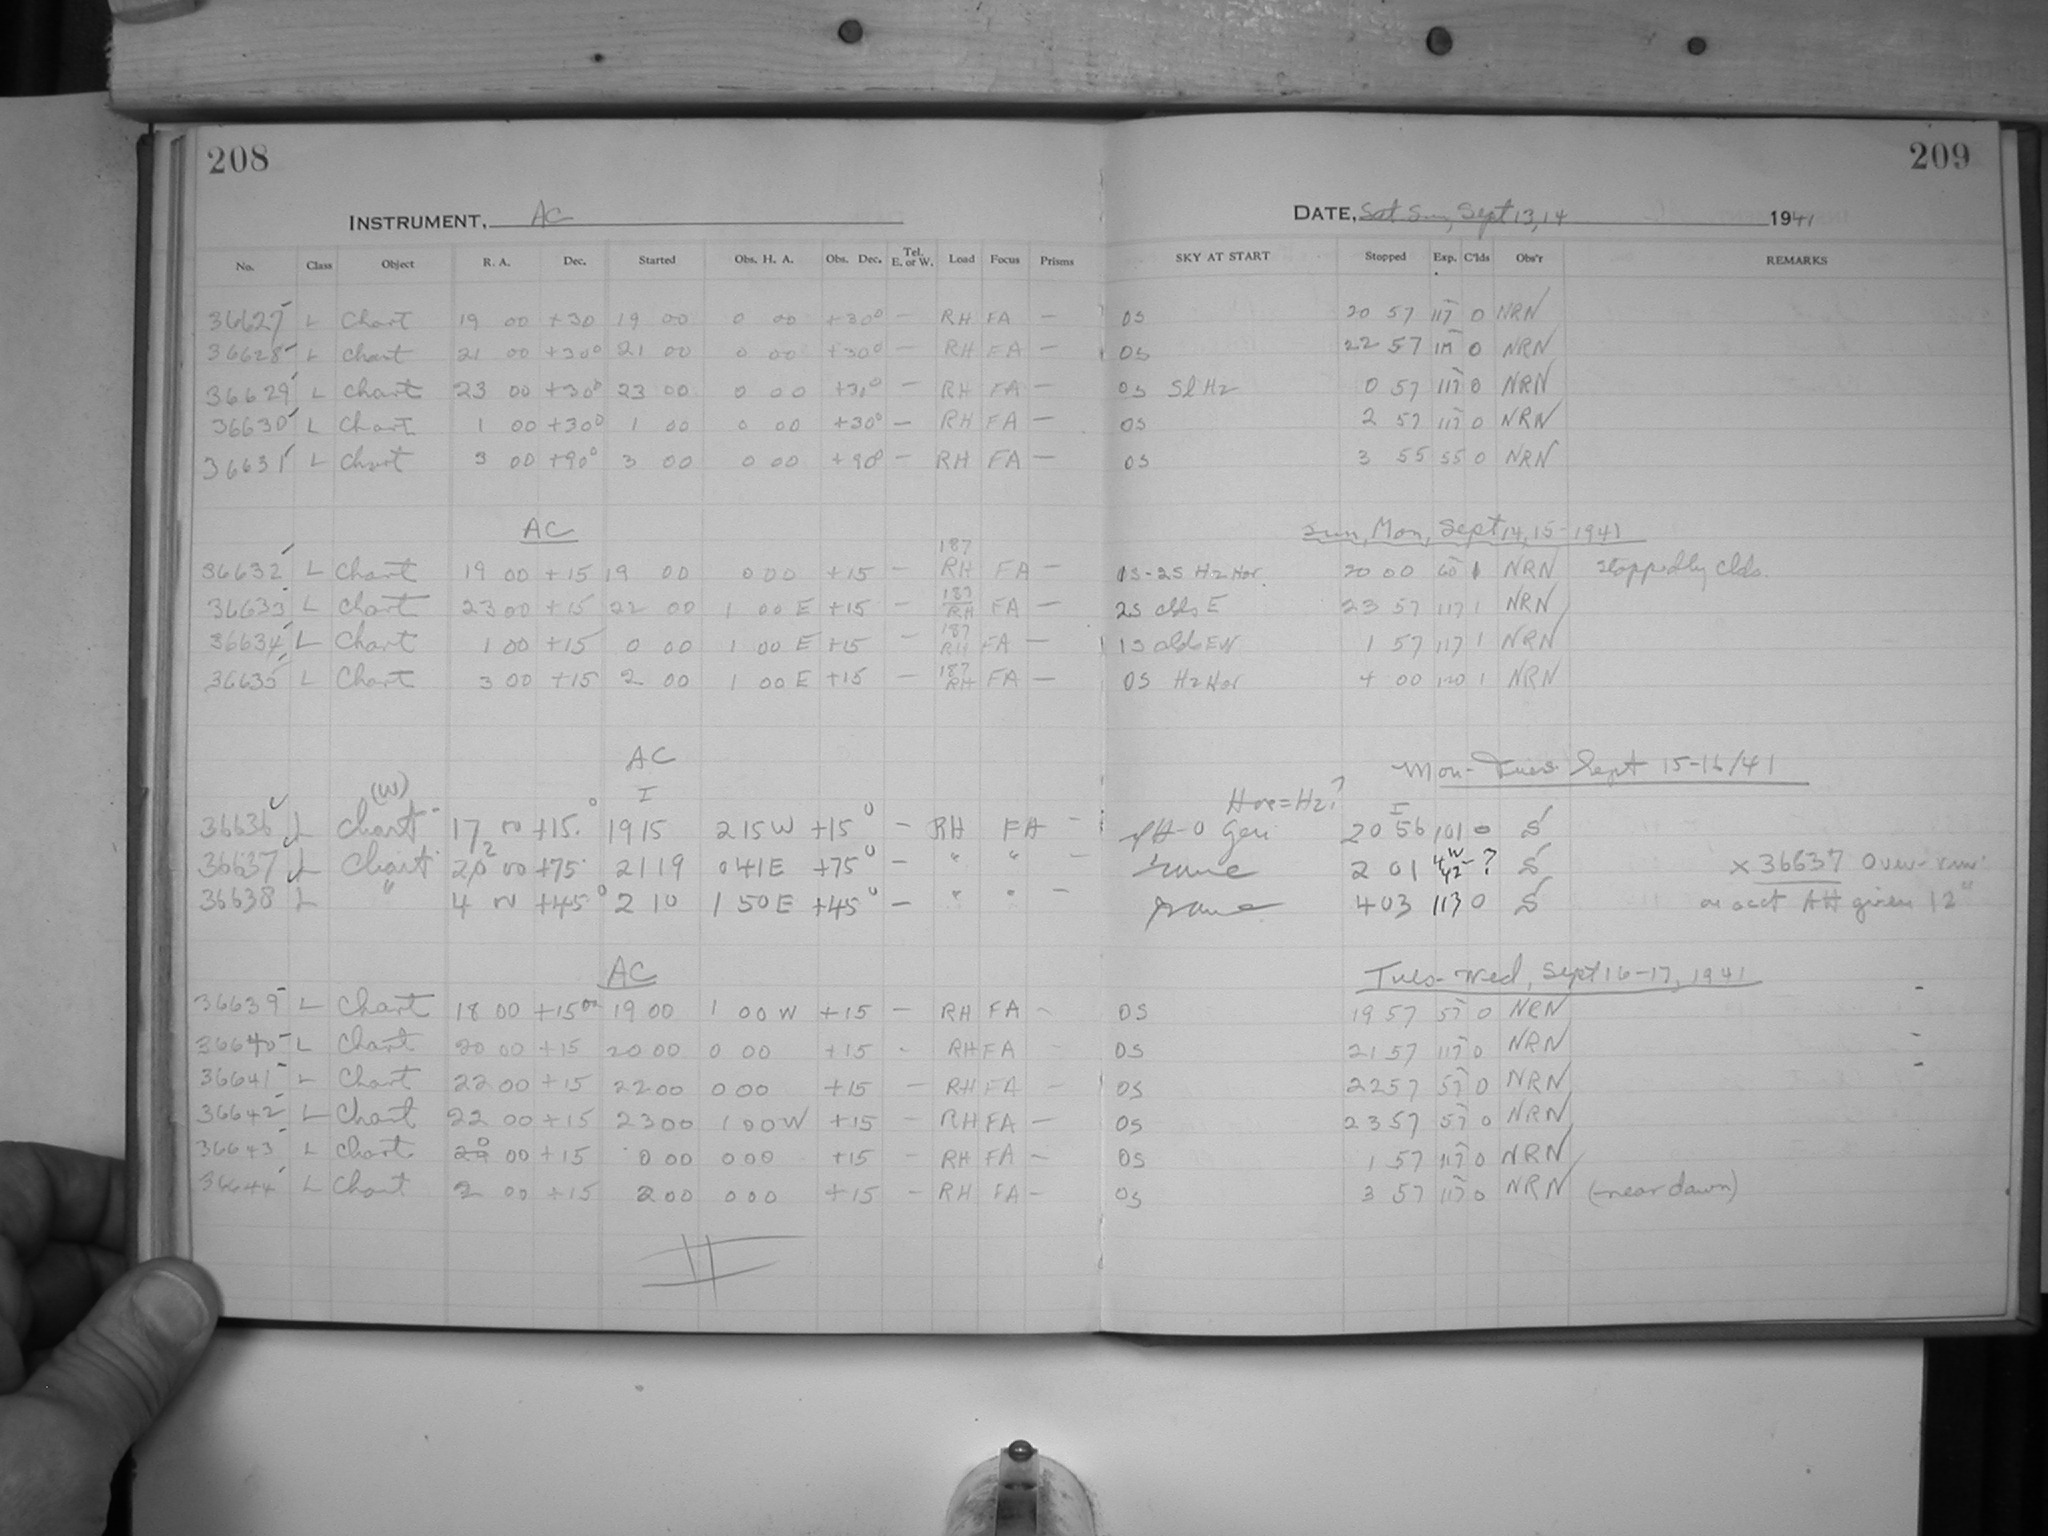 208
209
INSTRUMENT, AC
DATE, Sat Sun, Sept 13, 14 1941
No. Class Object R. A. Dec. Started Obs. H. A. Obs. Dec. Tel. E. or W. Load Focus Prisms SKY AT START Stopped Exp. C'lds Obs'r REMARKS
36627 L Chart 19 00 +30 19 00 0 00 +30° — RH FA — 0S 20 57 117 0 NRN
36628 L Chart 21 00 +30° 21 00 0 00 +30° — RH FA — 0S 22 57 117 0 NRN
36629 L Chart 23 00 +30° 23 00 0 00 +30° — RH FA — 0S Sl Hz 0 57 117 0 NRN
36630 L Chart 1 00 +30° 1 00 0 00 +30° — RH FA — 0S 2 57 117 0 NRN
36631 L Chart 3 00 +90° 3 00 0 00 +90 — RH FA — 0S 3 55 55 0 NRN
AC Sun, Mon, Sept 14, 15-1941
36632 L Chart 19 00 +15 19 00 0 00 +15 — 187 RH FA — 0S-2S Hz Hor. 20 00 60 1 NRN stopped by Clds.
36633 L Chart 23 00 +15 22 00 1 00 E +15 — 187 RH FA — 2S clds E 23 57 117 1 NRN
36634 L Chart 1 00 +15 0 00 1 00 E +15 — 187 RH FA — 1S clds EW 1 57 117 1 NRN
36635 L Chart 3 00 +15 2 00 1 00 E +15 — 187 RH FA — 0S Hz Hor 4 00 120 1 NRN
AC Mon-Tues Sept 15-16/41
(W) I Hor=Hz? I
36636 L Chart 17 00 +15° 19 15 2 15 W +15° — RH FA — 20 56 101 0 S
36637 L Chart 20 00 +75 21 19 0 41 E +75° — " " — same 2 01 ? S x 36637 Over-run
36638 L " 4 00 +45° 2 10 1 50 E +45° — " " — same 4 03 113 0 S on acct AH given 12"
AC Tues-Wed, Sept 16-17, 1941
36639 L Chart 18 00 +15 19 00 1 00 W +15 — RH FA — 0S 19 57 57 0 NRN
36640 L Chart 20 00 +15 20 00 0 00 +15 - RH FA — 0S 21 57 117 0 NRN
36641 L Chart 22 00 +15 22 00 0 00 +15 — RH FA — 0S 22 57 57 0 NRN
36642 L Chart 22 00 +15 23 00 1 00 W +15 — RH FA — 0S 23 57 57 0 NRN
36643 L Chart 0 00 +15 0 00 0 00 +15 — RH FA — 0S 1 57 117 0 NRN
36644 L Chart 2 00 +15 2 00 0 00 +15 — RH FA — 0S 3 57 117 0 NRN (near dawn)